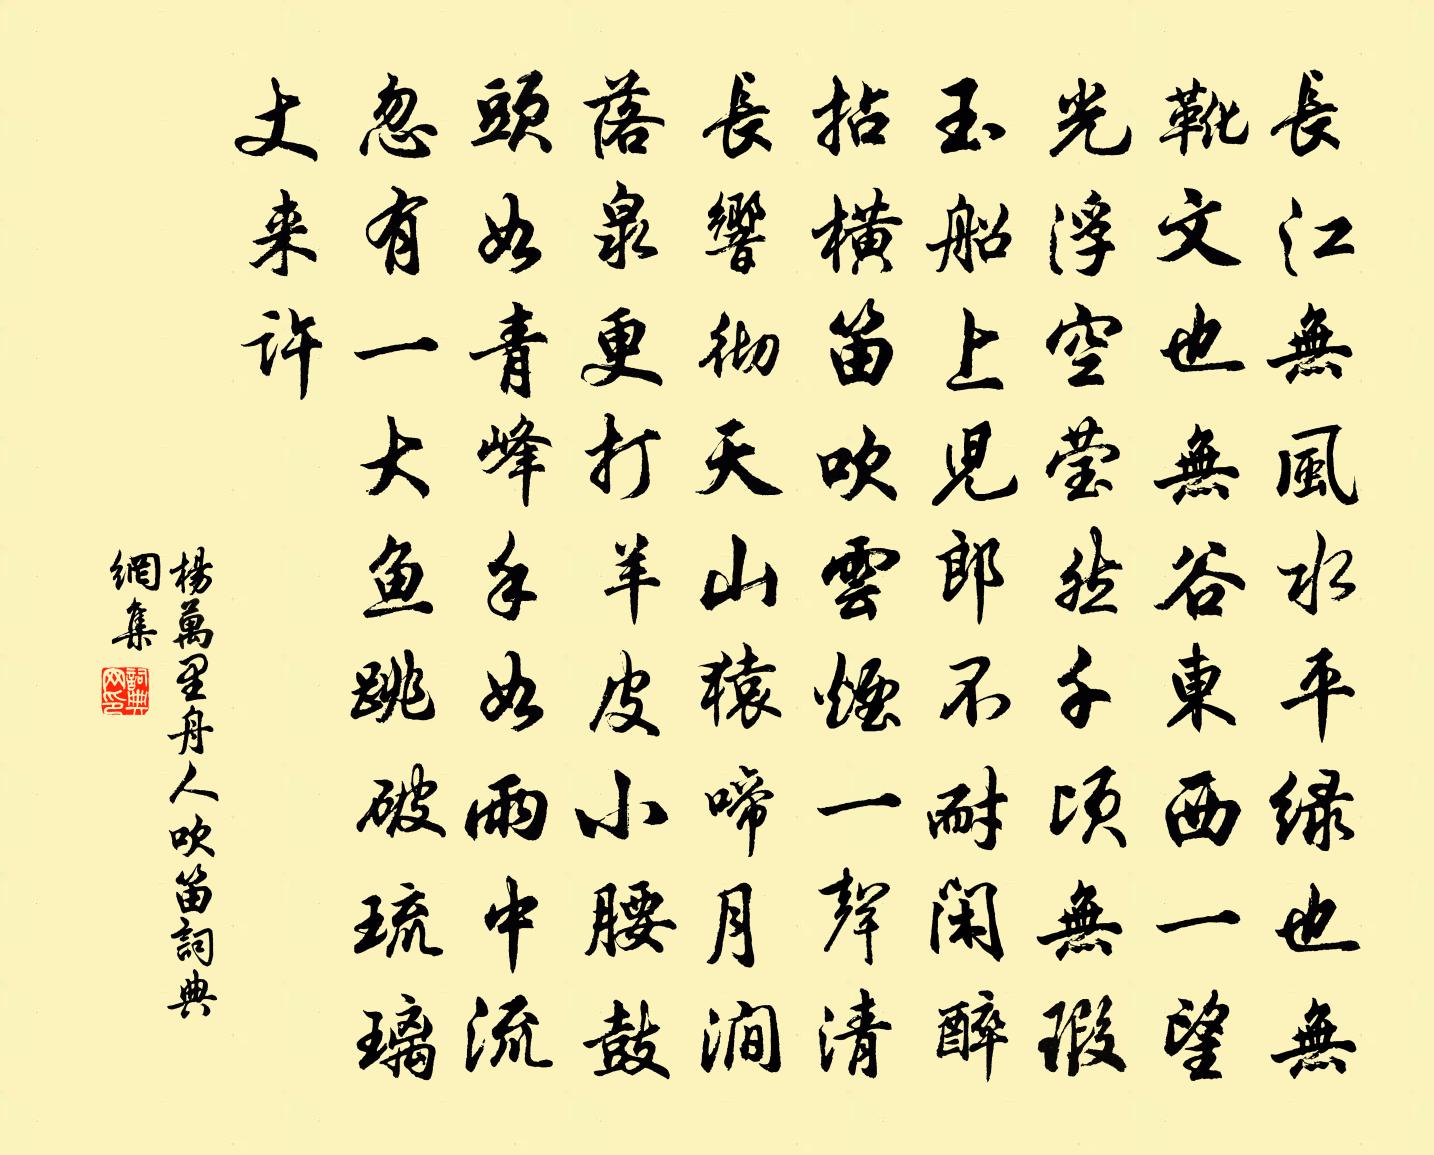 長江無風水平绿也無
靴文也無谷東西一望
光浮空莹然千顷無瑕
玉船上児郎不耐闲醉
拈橫笛吹雲煙一聲清
長響彻天山猿啼月澗
落泉更打羊皮小腰鼓
頭如青峰手如雨中流
忽有一大鱼跳破琉璃
丈来許
楊萬里舟人吹笛詞典
網集
詞典
网印